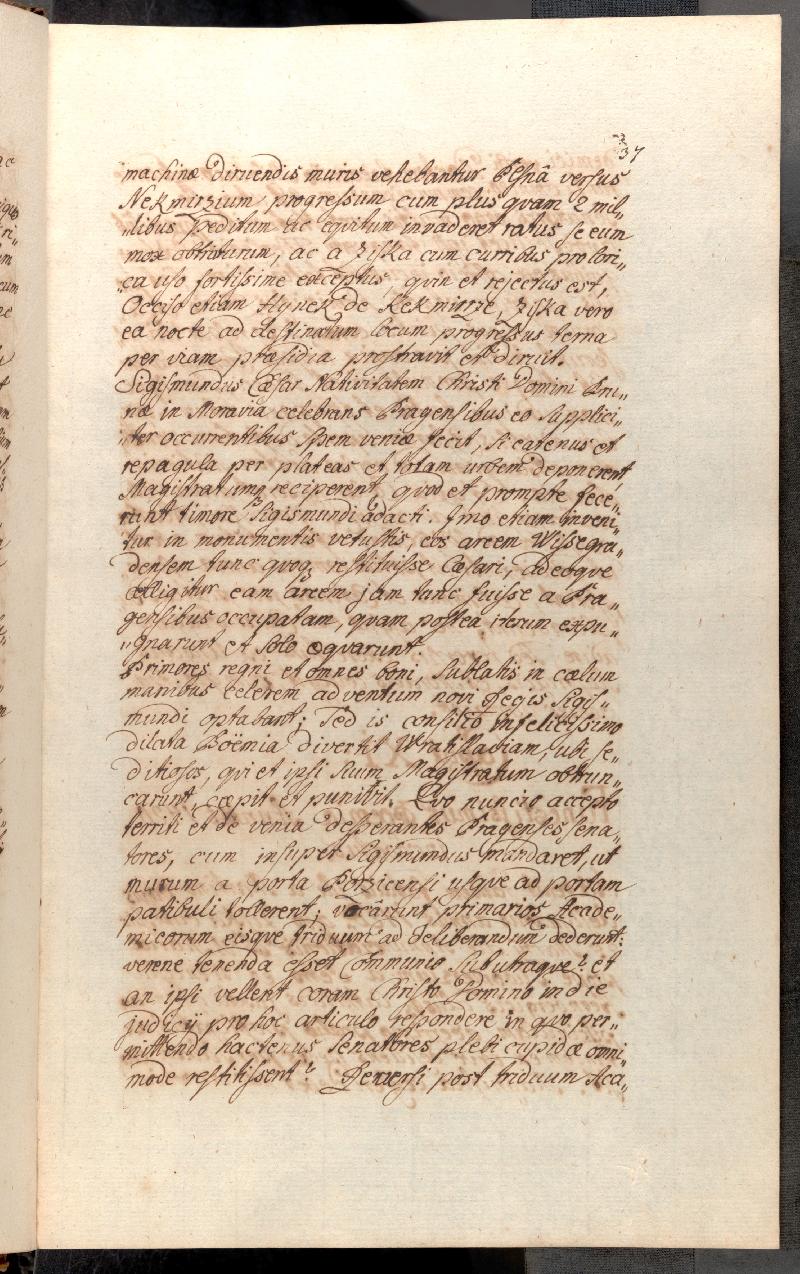 37
machinæ diruendis muris vehebantur Plsnâ versus
Nekmirzium progressum cum plus qvam 2 mil„
„libus peditum ac eqvitum invaderet ratus se eum
mox obtriturum, ac a Ziska cum curribus pro lori„
„ca uso fortissime exceptus, qvin et rejectus est,
Occiso etiam Hynek de Nekmirze, Ziska vero
ea nocte ad destinatum locum progressus terna
per viam præsidia prostravit et diruit.
Sigismundus Cæsar Nativitatem Christi Domini Bru„
næ in Moraviâ celebrans Pragensibus eo supplici„
„ter occurrentibus spem veniæ fecit, si catenas et
repagula per plateas et totam urbem deponerent
Magistratumq reciperent, qvod et prompte fece„
runt timore Sigismundi adacti. Imo etiam inveni„
tur in monumentis vetustis, eos arcem Wissegra„
densem tunc qvoq restituisse Cæsari, adeoqve
colligitur eam arcem jam tunc fuisse a Pra„
gensibus occupatam, qvam postea iterum expu„
„gnarunt et solo æqvarunt.
Primores regni et omnes boni, sublatis in cœlum
manibus celerem adventum novi Regis Sigis„
mundi optabant; Sed is consilio infelicissimo
dilata Boëmia divertit Wratislaviam, ubi se„
ditiosos, qvi et ipsi suum Magistratum obtrun„
carunt, cœpit et punivit. Qvo nuncio accepto
territi et de venia desperantes Pragenses sena„
tores, cum insuper Sigismundus mandaret, ut
murum a porta Porzicensi usqve ad portam
patibuli tollerent; vocârunt primarios Acade„
micorum eisqve triduum ad deliberandum dederunt:
verene tenenda esset Communio sub utraqve? et
an ipsi vellent coram Christo Domino in die
judicij pro hoc articulo respondere in qvo per„
mittendo hactenus Senatores plebi cupidæ omni„
mode restitissent? Reversi post triduum Aca„